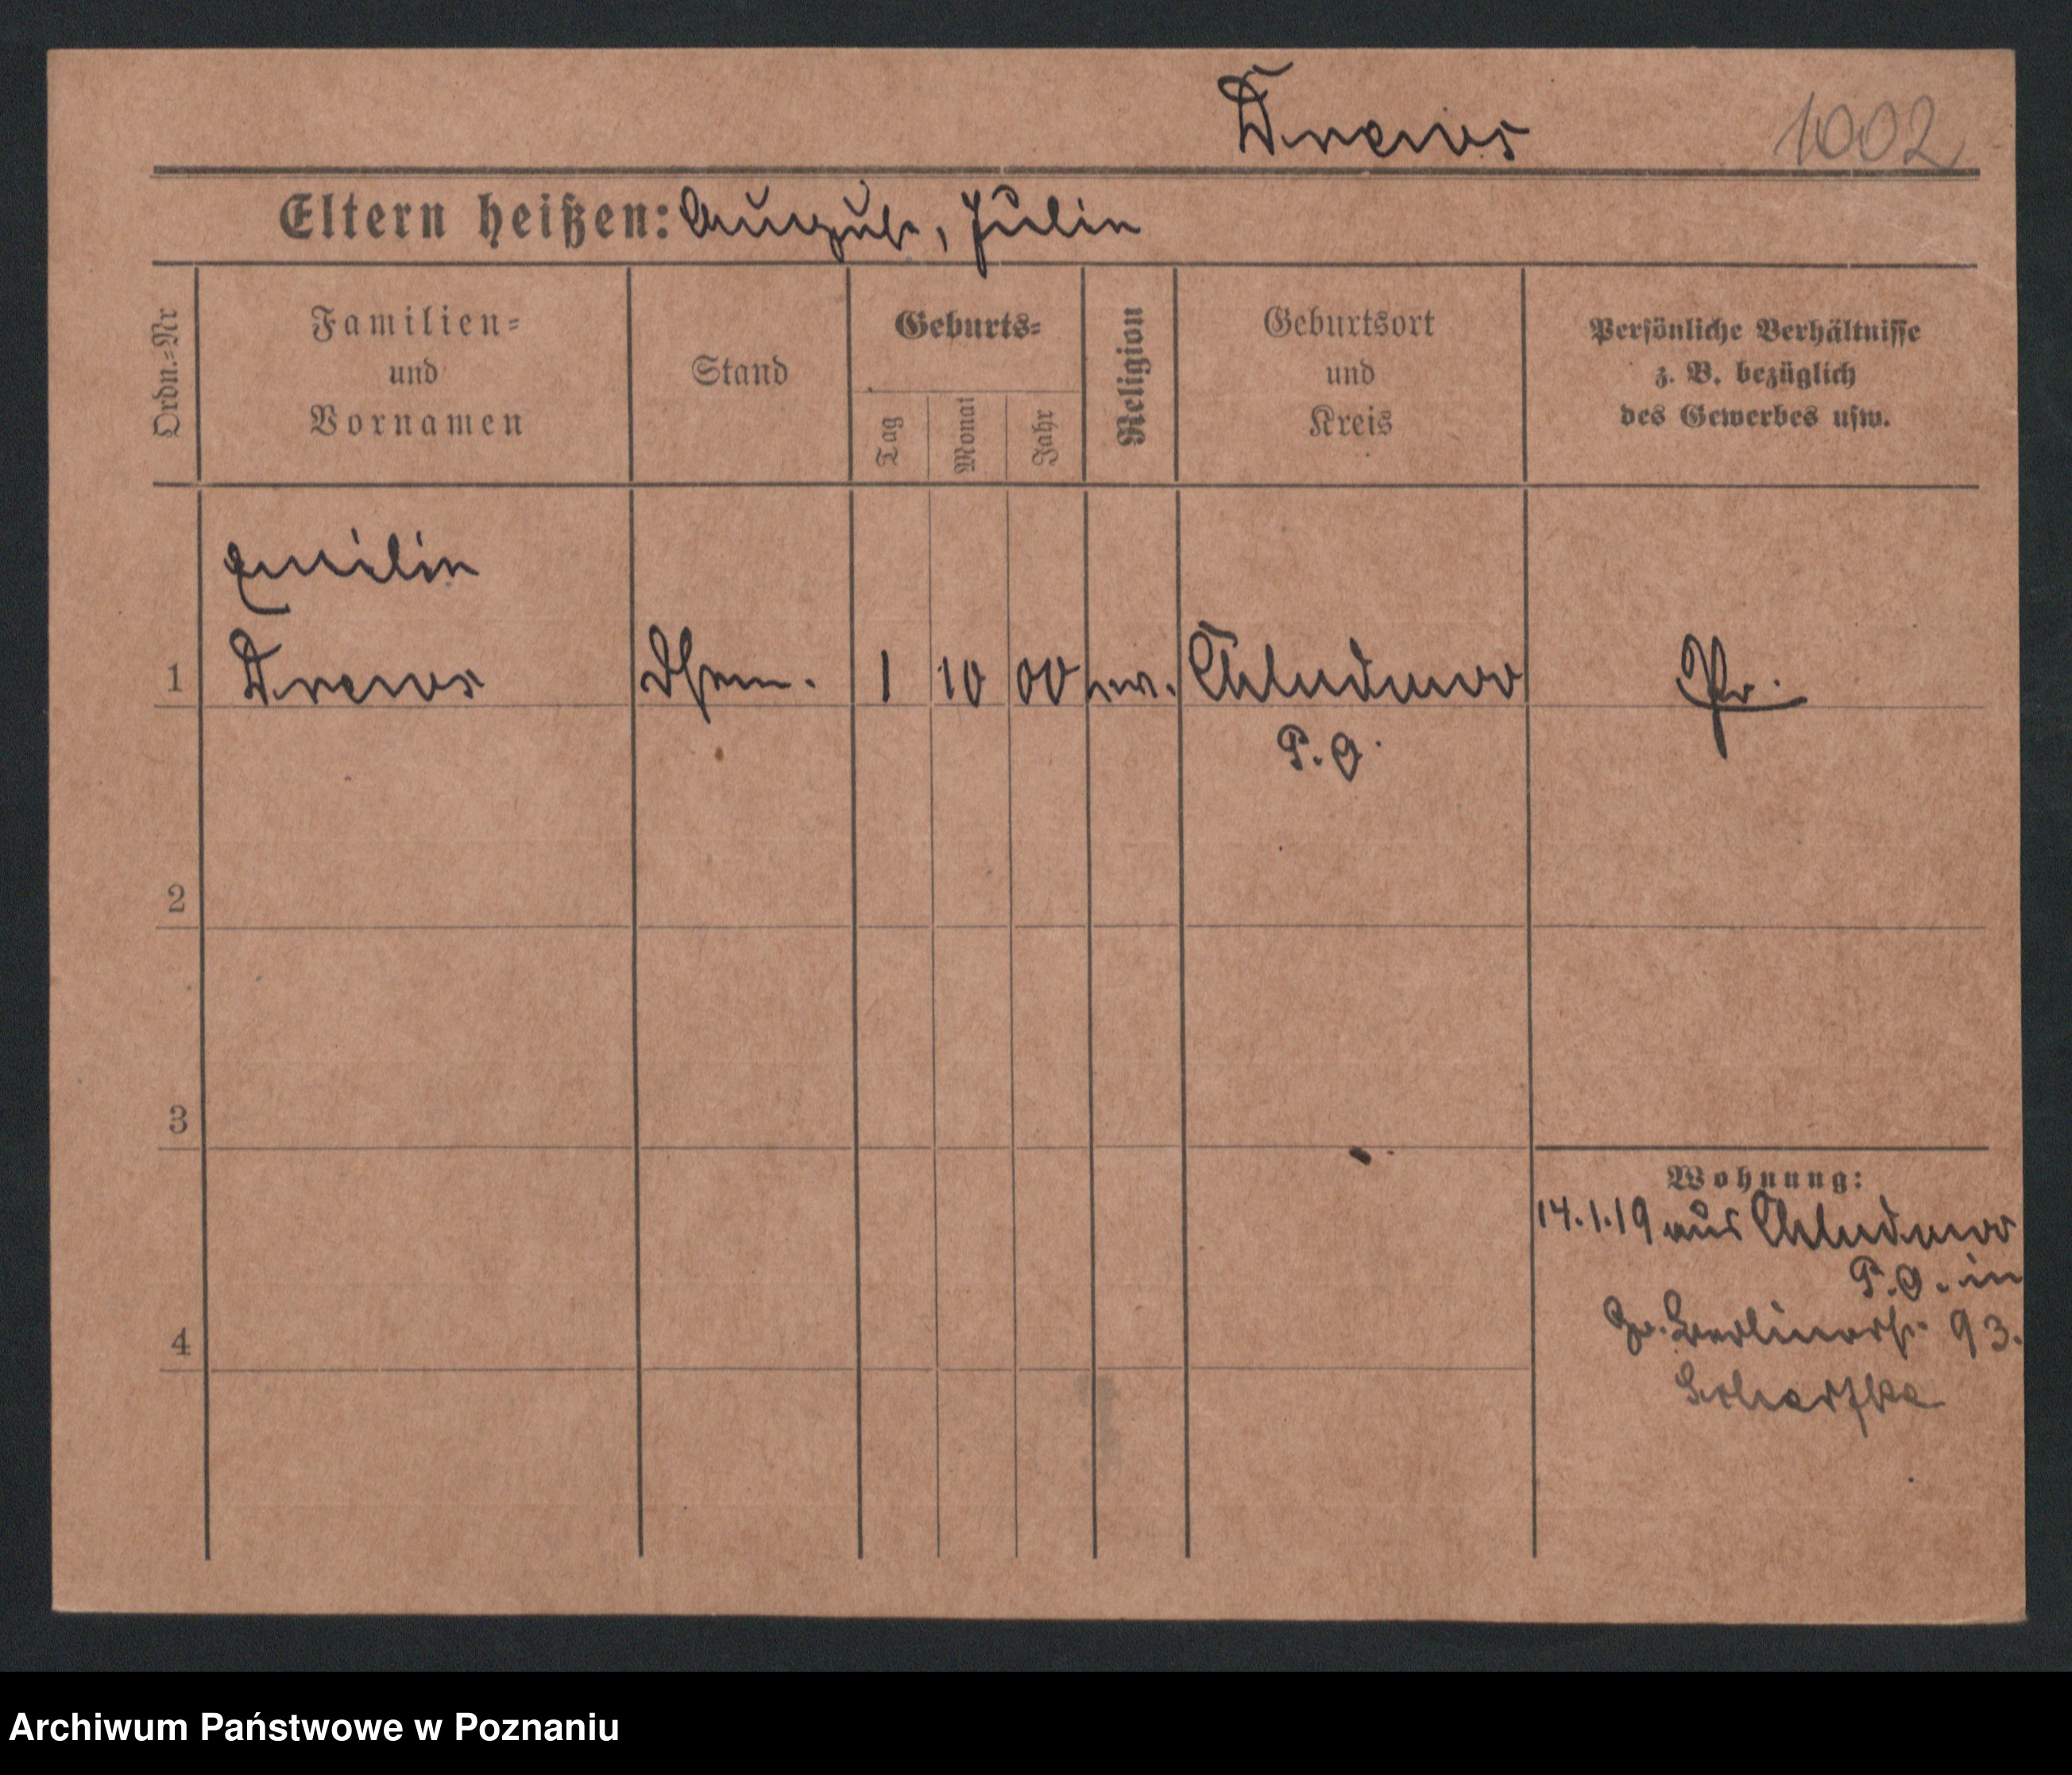 Drews 1002
Eltern heißen: August, Julie
Ordn.=Nr
Familien=
und
Vornamen
Stand
Geburts=
Tag
Monat
Jahr
Religion
Geburtsort
und
Kreis
Persönliche Verhältnisse
z. B. bezüglich
des Gewerbes usw.
Emilie
1 Drews 1 10 00 ev. Chludowo Pr.
P. O.
2
3
4
Wohnung:
14.1.19 aus Chludowo
P. O. in
Gr. Berlinerstr. 93.
Archiwum Państwowe w Poznaniu